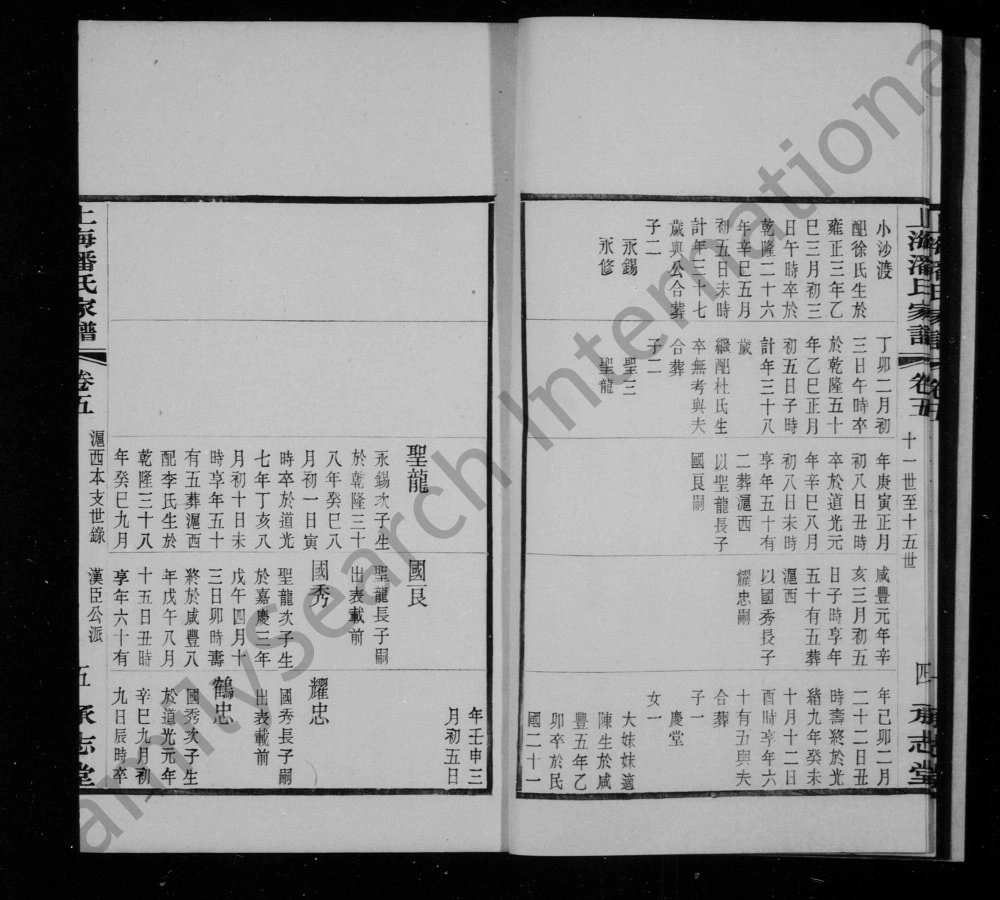 上海潘氏家譜
卷五
十一世至十五世
四
承志堂
小沙渡
配徐氏生於
雍正三年乙
巳三月初三
日午時卒於
乾隆二十六
年辛巳五月
初五日未時
計年三十七
歲與公合葬
子二
永錫
永修
丁卯二月初
三日午時卒
於乾隆五十
年乙巳正月
初五日子時
計年三十八
歲
繼配杜氏生
卒無考與夫
合葬
子二
聖三
聖龍
年庚寅正月
初八日丑時
卒於道光元
年辛巳八月
初八日未時
享年五十有
二葬滬西
以聖龍長子
國艮嗣
咸豐元年辛
亥三月初五
日子時享年
五十有五葬
滬西
以國秀長子
耀忠嗣
年己卯二月
二十二日丑
時壽終於光
緒九年癸未
十月十二日
酉時享年六
十有五與夫
合葬
子一
慶堂
女一
大妹妹適
陳生於咸
豐五年乙
卯卒於民
國二十一
年壬申三
月初五日
聖龍
永錫次子生
於乾隆三十
八年癸巳八
月初一日寅
時卒於道光
七年丁亥八
月初十日未
時享年五十
有五葬滬西
配李氏生於
乾隆三十八
年癸巳九月
國艮
聖龍長子嗣
出表載前
國秀
聖龍次子生
於嘉慶三年
戊午四月十
三日卯時壽
終於咸豐八
年戊午八月
十五日丑時
享年六十有
耀忠
國秀長子嗣
出表載前
鶴忠
國秀次子生
於道光元年
辛巳九月初
九日辰時卒
上海潘氏家譜
卷五
滬西本支世錄
漢臣公派
五
承志堂
FamilySearch International